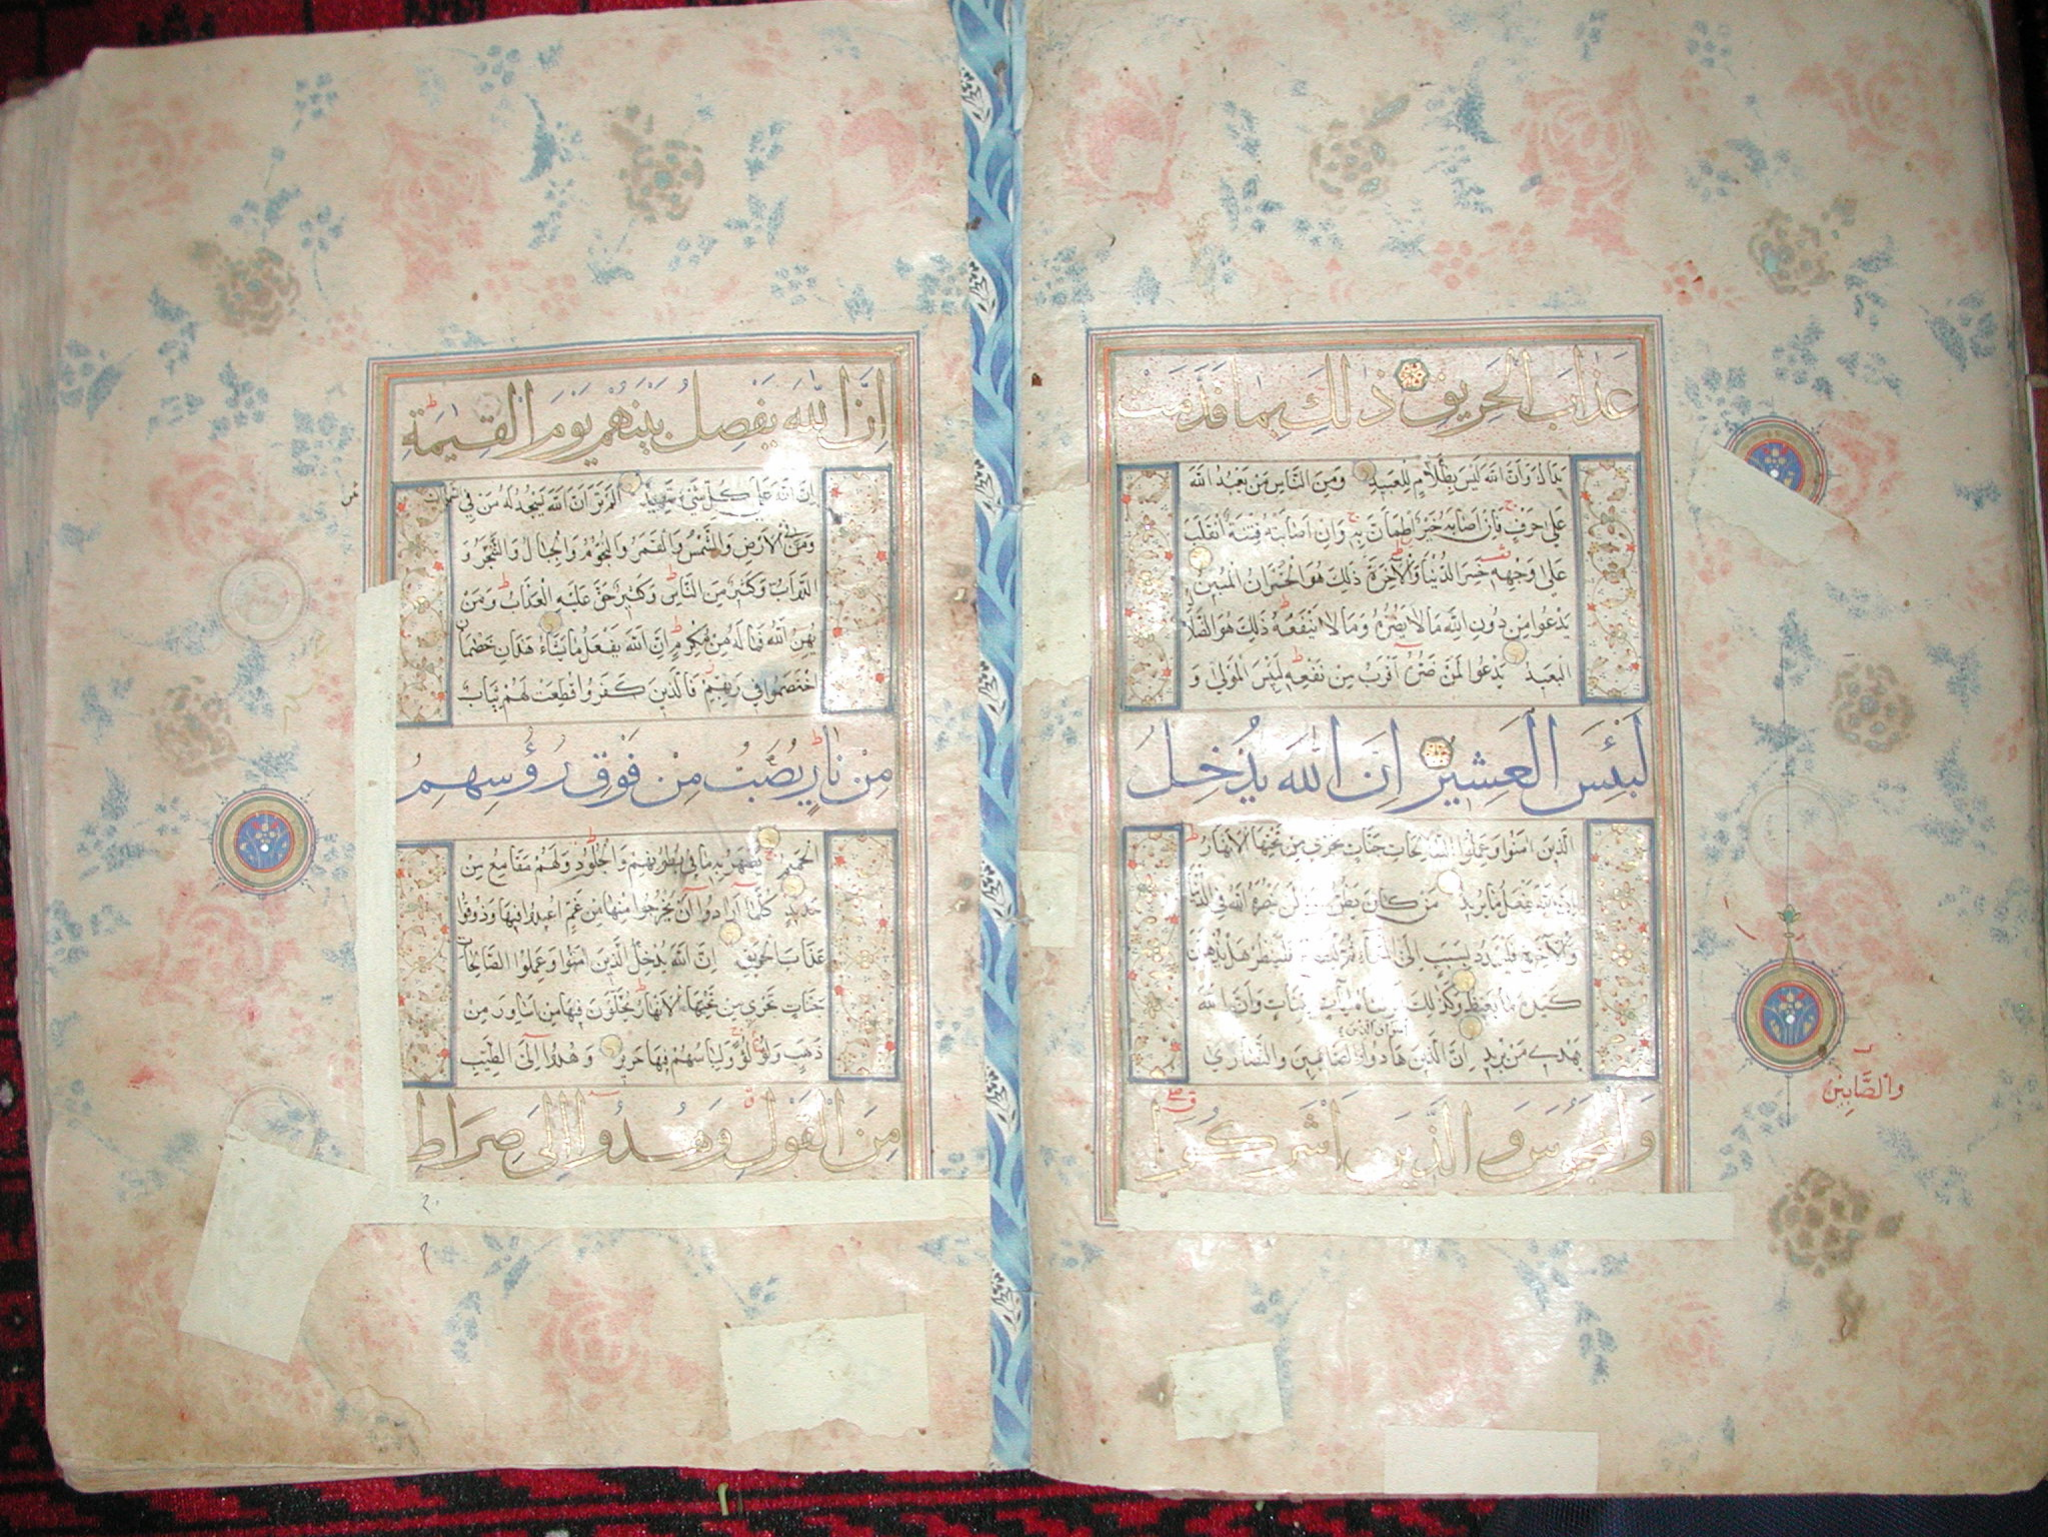 عَذَابَ الْحَرِيقِ ذٰلِكَ بِمَا قَدَّمَتْ
يَدَاكَ وَاَنَّ اللهَ لَيْسَ بِظَلَّامٍ لِلْعَبِيدِ وَمِنَ النَّاسِ مَنْ يَعْبُدُ اللهَ
عَلٰى حَرْفٍ فَاِنْ اَصَابَهُ خَيْرٌ اطْمَاَنَّ بِهِ وَاِنْ اَصَابَتْهُ فِتْنَةٌ انْقَلَبَ
عَلٰى وَجْهِهِ خَسِرَ الدُّنْيَا وَالْاٰخِرَةَ ذٰلِكَ هُوَ الْخُسْرَانُ الْمُبِينُ
يَدْعُوا مِنْ دُونِ اللهِ مَا لَا يَضُرُّهُ وَمَا لَا يَنْفَعُهُ ذٰلِكَ هُوَ الضَّلَالُ
الْبَعِيدُ يَدْعُوا لَمَنْ ضَرُّهُ اَقْرَبُ مِنْ نَفْعِهِ لَبِئْسَ الْمَوْلٰى وَ
لَبِئْسَ الْعَشِيرُ اِنَّ اللهَ يُدْخِلُ
الَّذِينَ اٰمَنُوا وَعَمِلُوا الصَّالِحَاتِ جَنَّاتٍ تَجْرِي مِنْ تَحْتِهَا الْاَنْهَارُ
اِنَّ اللهَ يَفْعَلُ مَا يُرِيدُ مَنْ كَانَ يَظُنُّ اَنْ لَنْ يَنْصُرَهُ اللهُ فِي الدُّنْيَا
وَالْاٰخِرَةِ فَلْيَمْدُدْ بِسَبَبٍ اِلَى السَّمَاءِ ثُمَّ لْيَقْطَعْ فَلْيَنْظُرْ هَلْ يُذْهِبَنَّ
كَيْدُهُ مَا يَغِيظُ وَكَذٰلِكَ اَنْزَلْنَاهُ اٰيَاتٍ بَيِّنَاتٍ وَاَنَّ اللهَ
يَهْدِي مَنْ يُرِيدُ اِنَّ الَّذِينَ اٰمَنُوا وَالَّذِينَ هَادُوا وَالصَّابِئِينَ وَالنَّصَارٰى
وَالْمَجُوسَ وَالَّذِينَ اَشْرَكُوا
وَالصَّابِينَ
اِنَّ اللهَ يَفْصِلُ بَيْنَهُمْ يَوْمَ الْقِيٰمَةِ
اِنَّ اللهَ عَلٰى كُلِّ شَيْءٍ شَهِيدٌ اَلَمْ تَرَ اَنَّ اللهَ يَسْجُدُ لَهُ مَنْ فِي السَّمٰوَاتِ
وَمَنْ فِي الْاَرْضِ وَالشَّمْسُ وَالْقَمَرُ وَالنُّجُومُ وَالْجِبَالُ وَالشَّجَرُ وَ
الدَّوَابُّ وَكَثِيرٌ مِنَ النَّاسِ وَكَثِيرٌ حَقَّ عَلَيْهِ الْعَذَابُ وَمَنْ
يُهِنِ اللهُ فَمَا لَهُ مِنْ مُكْرِمٍ اِنَّ اللهَ يَفْعَلُ مَا يَشَاءُ هٰذَانِ خَصْمَانِ
اخْتَصَمُوا فِي رَبِّهِمْ فَالَّذِينَ كَفَرُوا قُطِّعَتْ لَهُمْ ثِيَابٌ
مِنْ نَارٍ يُصَبُّ مِنْ فَوْقِ رُؤُسِهِمُ
الْحَمِيمُ يُصْهَرُ بِهِ مَا فِي بُطُونِهِمْ وَالْجُلُودُ وَلَهُمْ مَقَامِعُ مِنْ
حَدِيدٍ كُلَّمَا اَرَادُوا اَنْ يَخْرُجُوا مِنْهَا مِنْ غَمٍّ اُعِيدُوا فِيهَا وَذُوقُوا
عَذَابَ الْحَرِيقِ اِنَّ اللهَ يُدْخِلُ الَّذِينَ اٰمَنُوا وَعَمِلُوا الصَّالِحَاتِ
جَنَّاتٍ تَجْرِي مِنْ تَحْتِهَا الْاَنْهَارُ يُحَلَّوْنَ فِيهَا مِنْ اَسَاوِرَ مِنْ
ذَهَبٍ وَلُؤْلُؤًا وَلِبَاسُهُمْ فِيهَا حَرِيرٌ وَهُدُوا اِلَى الطَّيِّبِ
مِنَ الْقَوْلِ وَهُدُوا اِلٰى صِرَاطِ